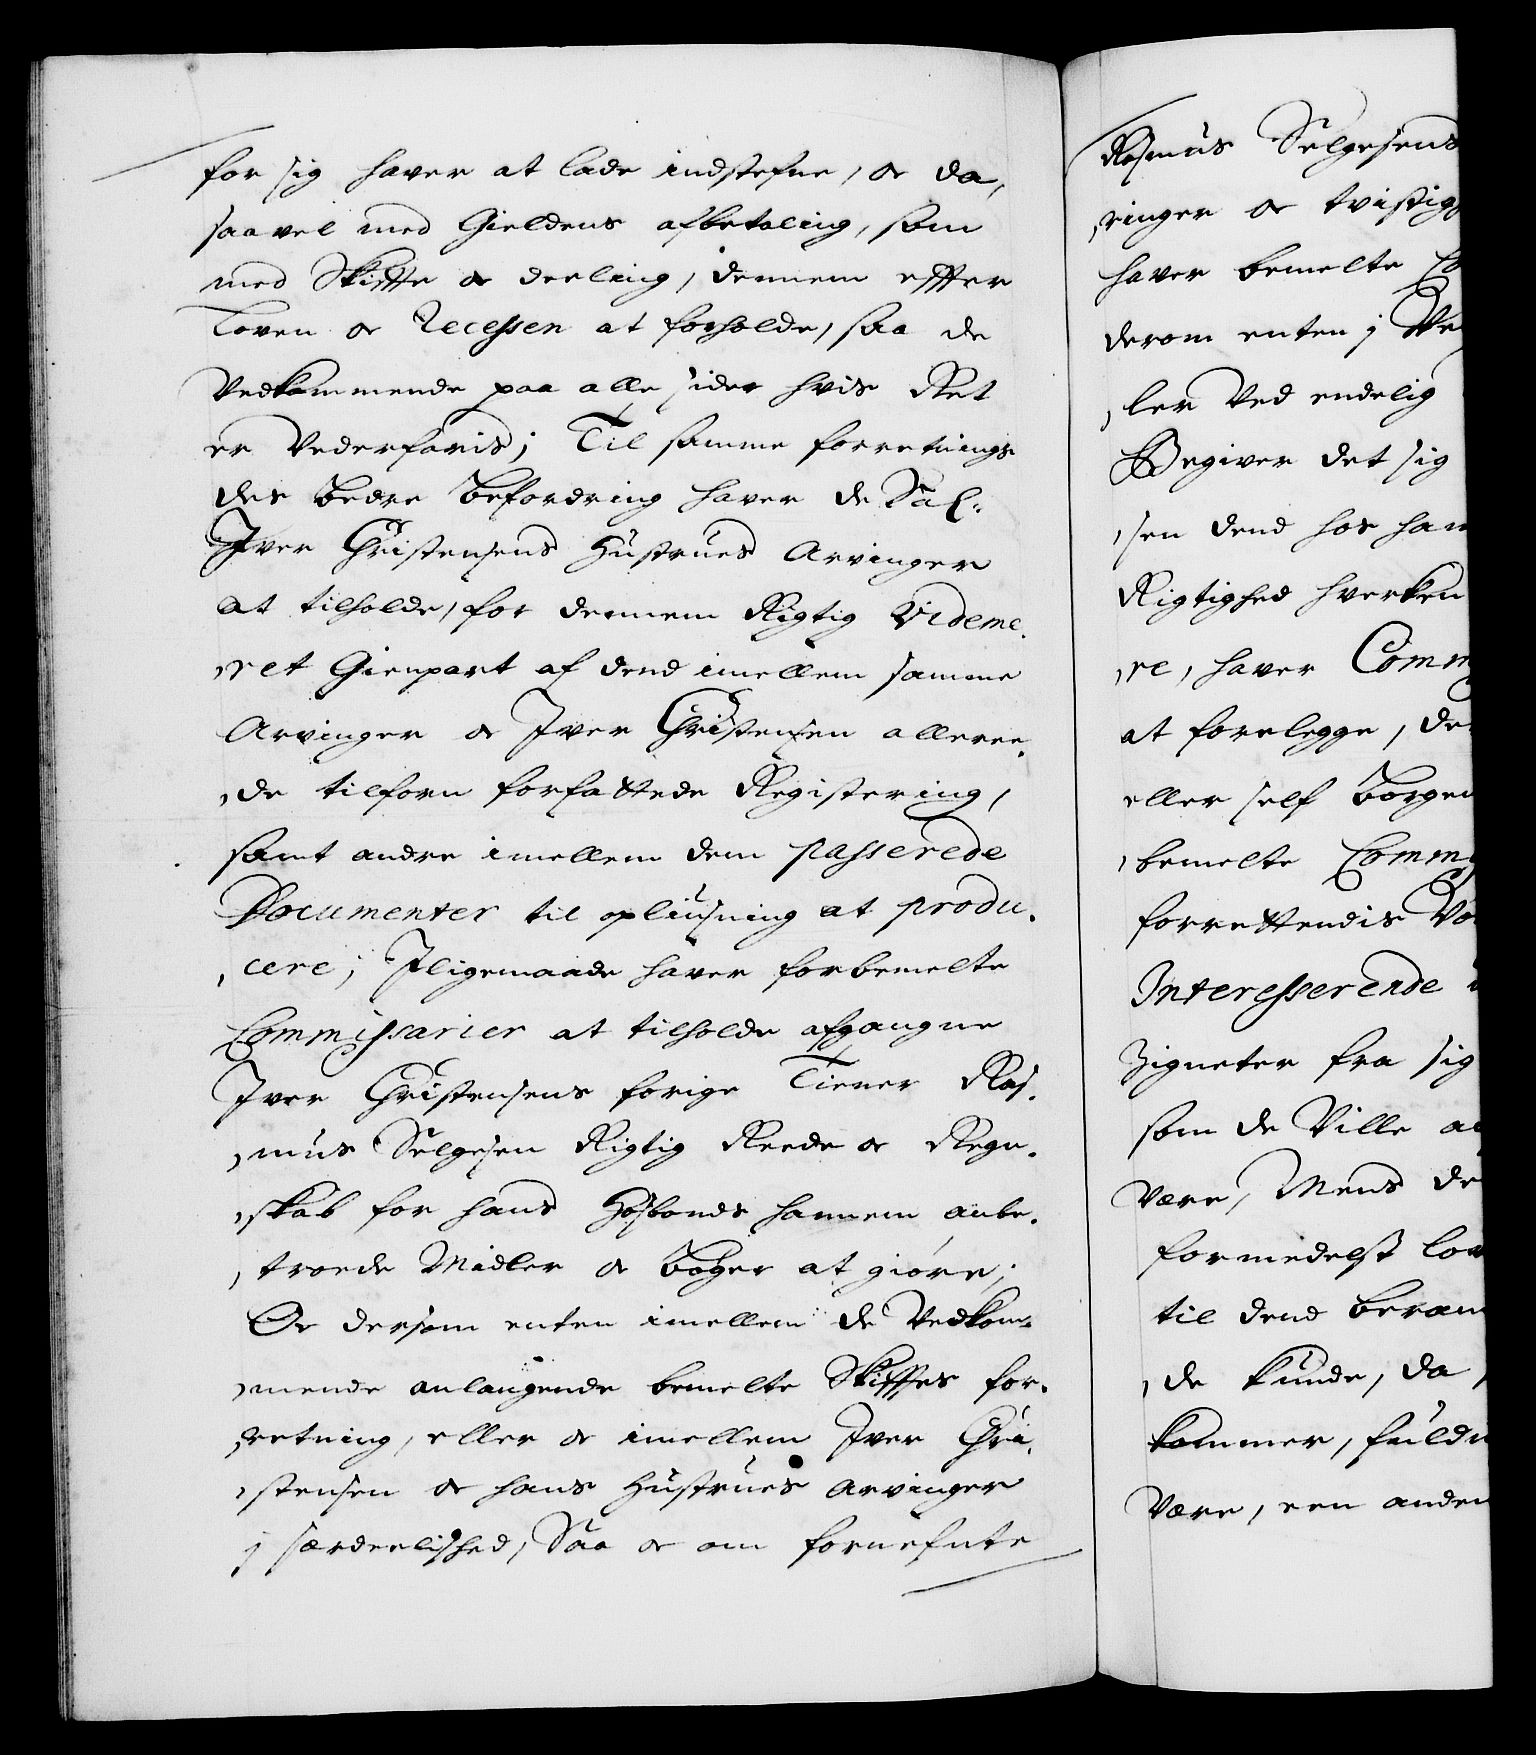 for sig hafver at lade indstefne, oc da,
saavel med Gieldens afbetaling, som
med Skiffte oc deeling, dennem effter
Loven oc Recessen at forholde, saa de
Vedkommende paa alle sider hvis Ret
er Vederfaris; Til samme forretnings
des bedre befordring hafver de Sal:
Iver Christensens Hustrues Arvinger
at tilholde, for dennem Rigtig Videme,
,ret Gienpart af dend imellem samme
Arvinger oc Iver Christensen alleree,
,de tilforn forfattede Registering,
samt andre imellem dem passerede
Documenter til opliusning at produ,
,cere; Iligemaade hafver forbemelte
Commissarier at tilholde afgangne
Iver Christensens forige Tiener Ras,
,mus Selgesen Rigtig Reede oc Regn,
,skab for hans Hosbonds hannem anbe,
,troede Midler oc bøger at giøre;
Oc dersom enten imellem de Vedkom,
,mende anlangende bemelte Skifftes for,
,retning, eller oc imellem Iver Chri,
,stensen oc hans Hustrues Arvinger
j særdeelished, Saa oc om fornefnte
Rasmus Selgesens
,ringer oc tvistig
hafver bemelte Co
derom enten j Ve
,ler Ved endelig
Begiver det sig
,sen dend hos han
Rigtighed hverken
,re, hafver Comm
at forelegge, de
eller self borgen
,bemelte Comm
forrettendis Vo
Interesserende
Zigneter fra sig
som de Ville a
Være, Mens de
formedelst lov
til dend beram
,de kunde, da
kommer, fuld
Være, een anden